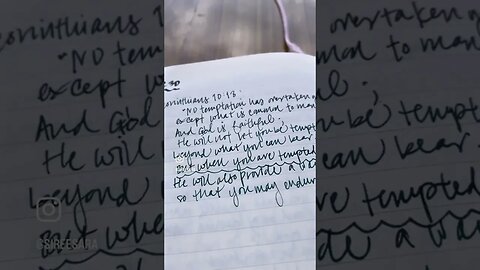 orinthians 10:13:
"No temptation has overtaken
except what is common to man
And God is faithful;
He will not let you be tempt
beyond what you can bear
But when you are tempted
He will also provide a wa
so that you may endur
@SIREESARA